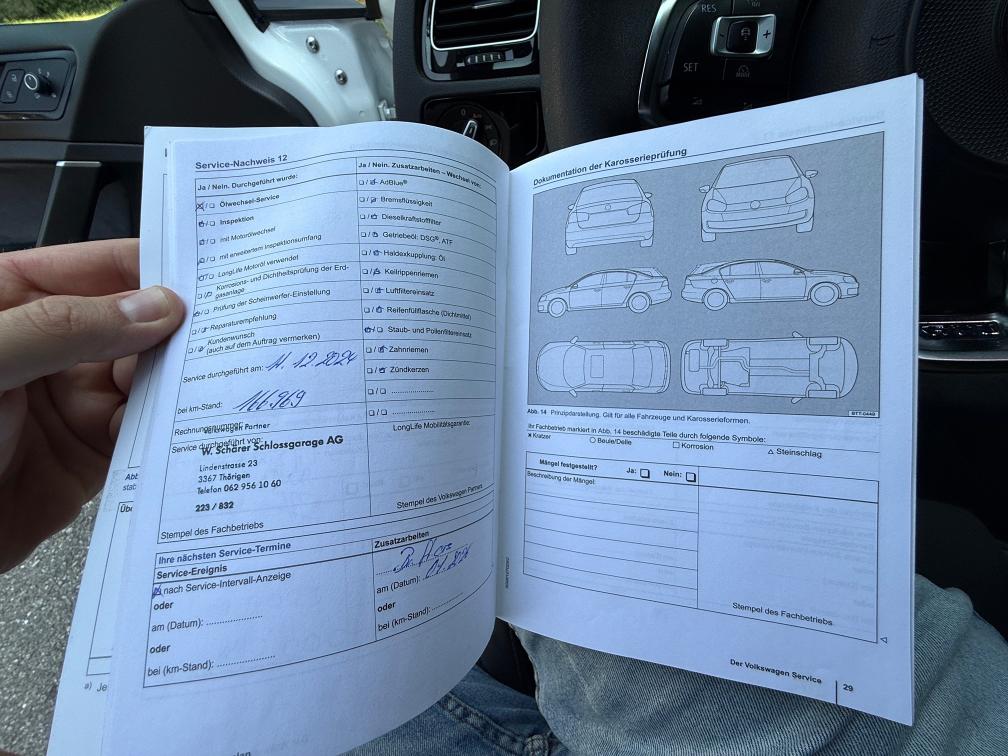 RES
SET
Service-Nachweis 12
Ja / Nein. Durchgeführt wurde:
Ölwechsel-Service
Inspektion
mit Motorölwechsel
mit erweitertem Inspektionsumfang
LongLife Motoröl verwendet
Korrosions- und Dichtheitsprüfung der Erd-
gasanlage
Prüfung der Scheinwerfer-Einstellung
Reparaturempfehlung
Kundenwunsch
(auch auf dem Auftrag vermerken)
Service durchgeführt am: 11.12.2024
bei km-Stand: 166.969
Rechnungsnummer:
Volkswagen Partner
Service durchgeführt von:
W. Schärer Schlossgarage AG
Lindenstrasse 23
3367 Thörigen
Telefon 062 956 10 60
223 / 832
Stempel des Fachbetriebs
Ja / Nein. Zusatzarbeiten – Wechsel von:
AdBlue®
Bremsflüssigkeit
Dieselkraftstofffilter
Getriebeöl: DSG®, ATF
Haldexkupplung: Öl
Keilrippenriemen
Luftfiltereinsatz
Reifenfüllflasche (Dichtmittel)
Staub- und Pollenfiltereinsatz
Zahnriemen
Zündkerzen
LongLife Mobilitätsgarantie:
Stempel des Volkswagen Partners
Ihre nächsten Service-Termine
Service-Ereignis
nach Service-Intervall-Anzeige
oder
am (Datum):
oder
bei (km-Stand):
Zusatzarbeiten
am (Datum):
oder
bei (km-Stand):
a) Je
Dokumentation der Karosserieprüfung
BTT-0449
Abb. 14 Prinzipdarstellung. Gilt für alle Fahrzeuge und Karosserieformen.
Ihr Fachbetrieb markiert in Abb. 14 beschädigte Teile durch folgende Symbole:
× Kratzer ○ Beule/Delle □ Korrosion △ Steinschlag
Mängel festgestellt? Ja: Nein:
Beschreibung der Mängel:
Stempel des Fachbetriebs
Der Volkswagen Service 29